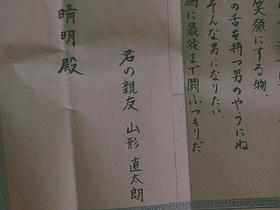 笑顔にする物
の舌を持つ男のやうにね
そんな男になりたい、
に最後まで闘ふつもりだ。
君の親友 山形 直太朗
晴明殿